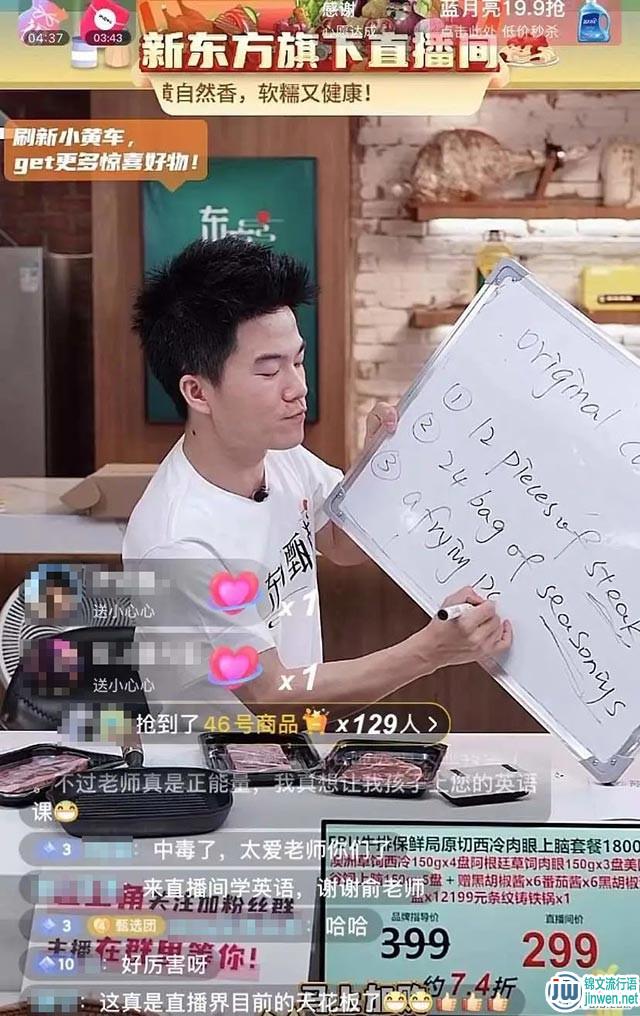 04:37
03:43
感谢
心愿达成
蓝月亮19.9抢
点击此处 低价秒杀
新东方旗下直播间
自然香，软糯又健康！
刷新小黄车，
get更多惊喜好物！
东
original
① 12 pieces of steak
② 24 bag of seasonings
③ a frying
东 甄
送小心心
x1
送小心心
x1
抢到了46号商品 x129人 >
。不过老师真是正能量，我真想让我孩子上您的英语
课😁
3 中毒了，太爱老师你们了
来直播间学英语，谢谢俞老师
3 4 甄选团 哈哈
10 好厉害呀
这真是直播界目前的天花板了😁😁👍👍👍
关注加粉丝群
主播在群里等你！
牛排保鲜局原切西冷肉眼上脑套餐1800
澳洲草饲西冷150gx4盘阿根廷草饲肉眼150gx3盘美
5盘 + 赠黑胡椒酱x6番茄酱x6黑胡椒
x12199元条纹铸铁锅x1
品牌指导价
399
直播间价
299
约7.4折
锦文流行语
JW
jinwen.net